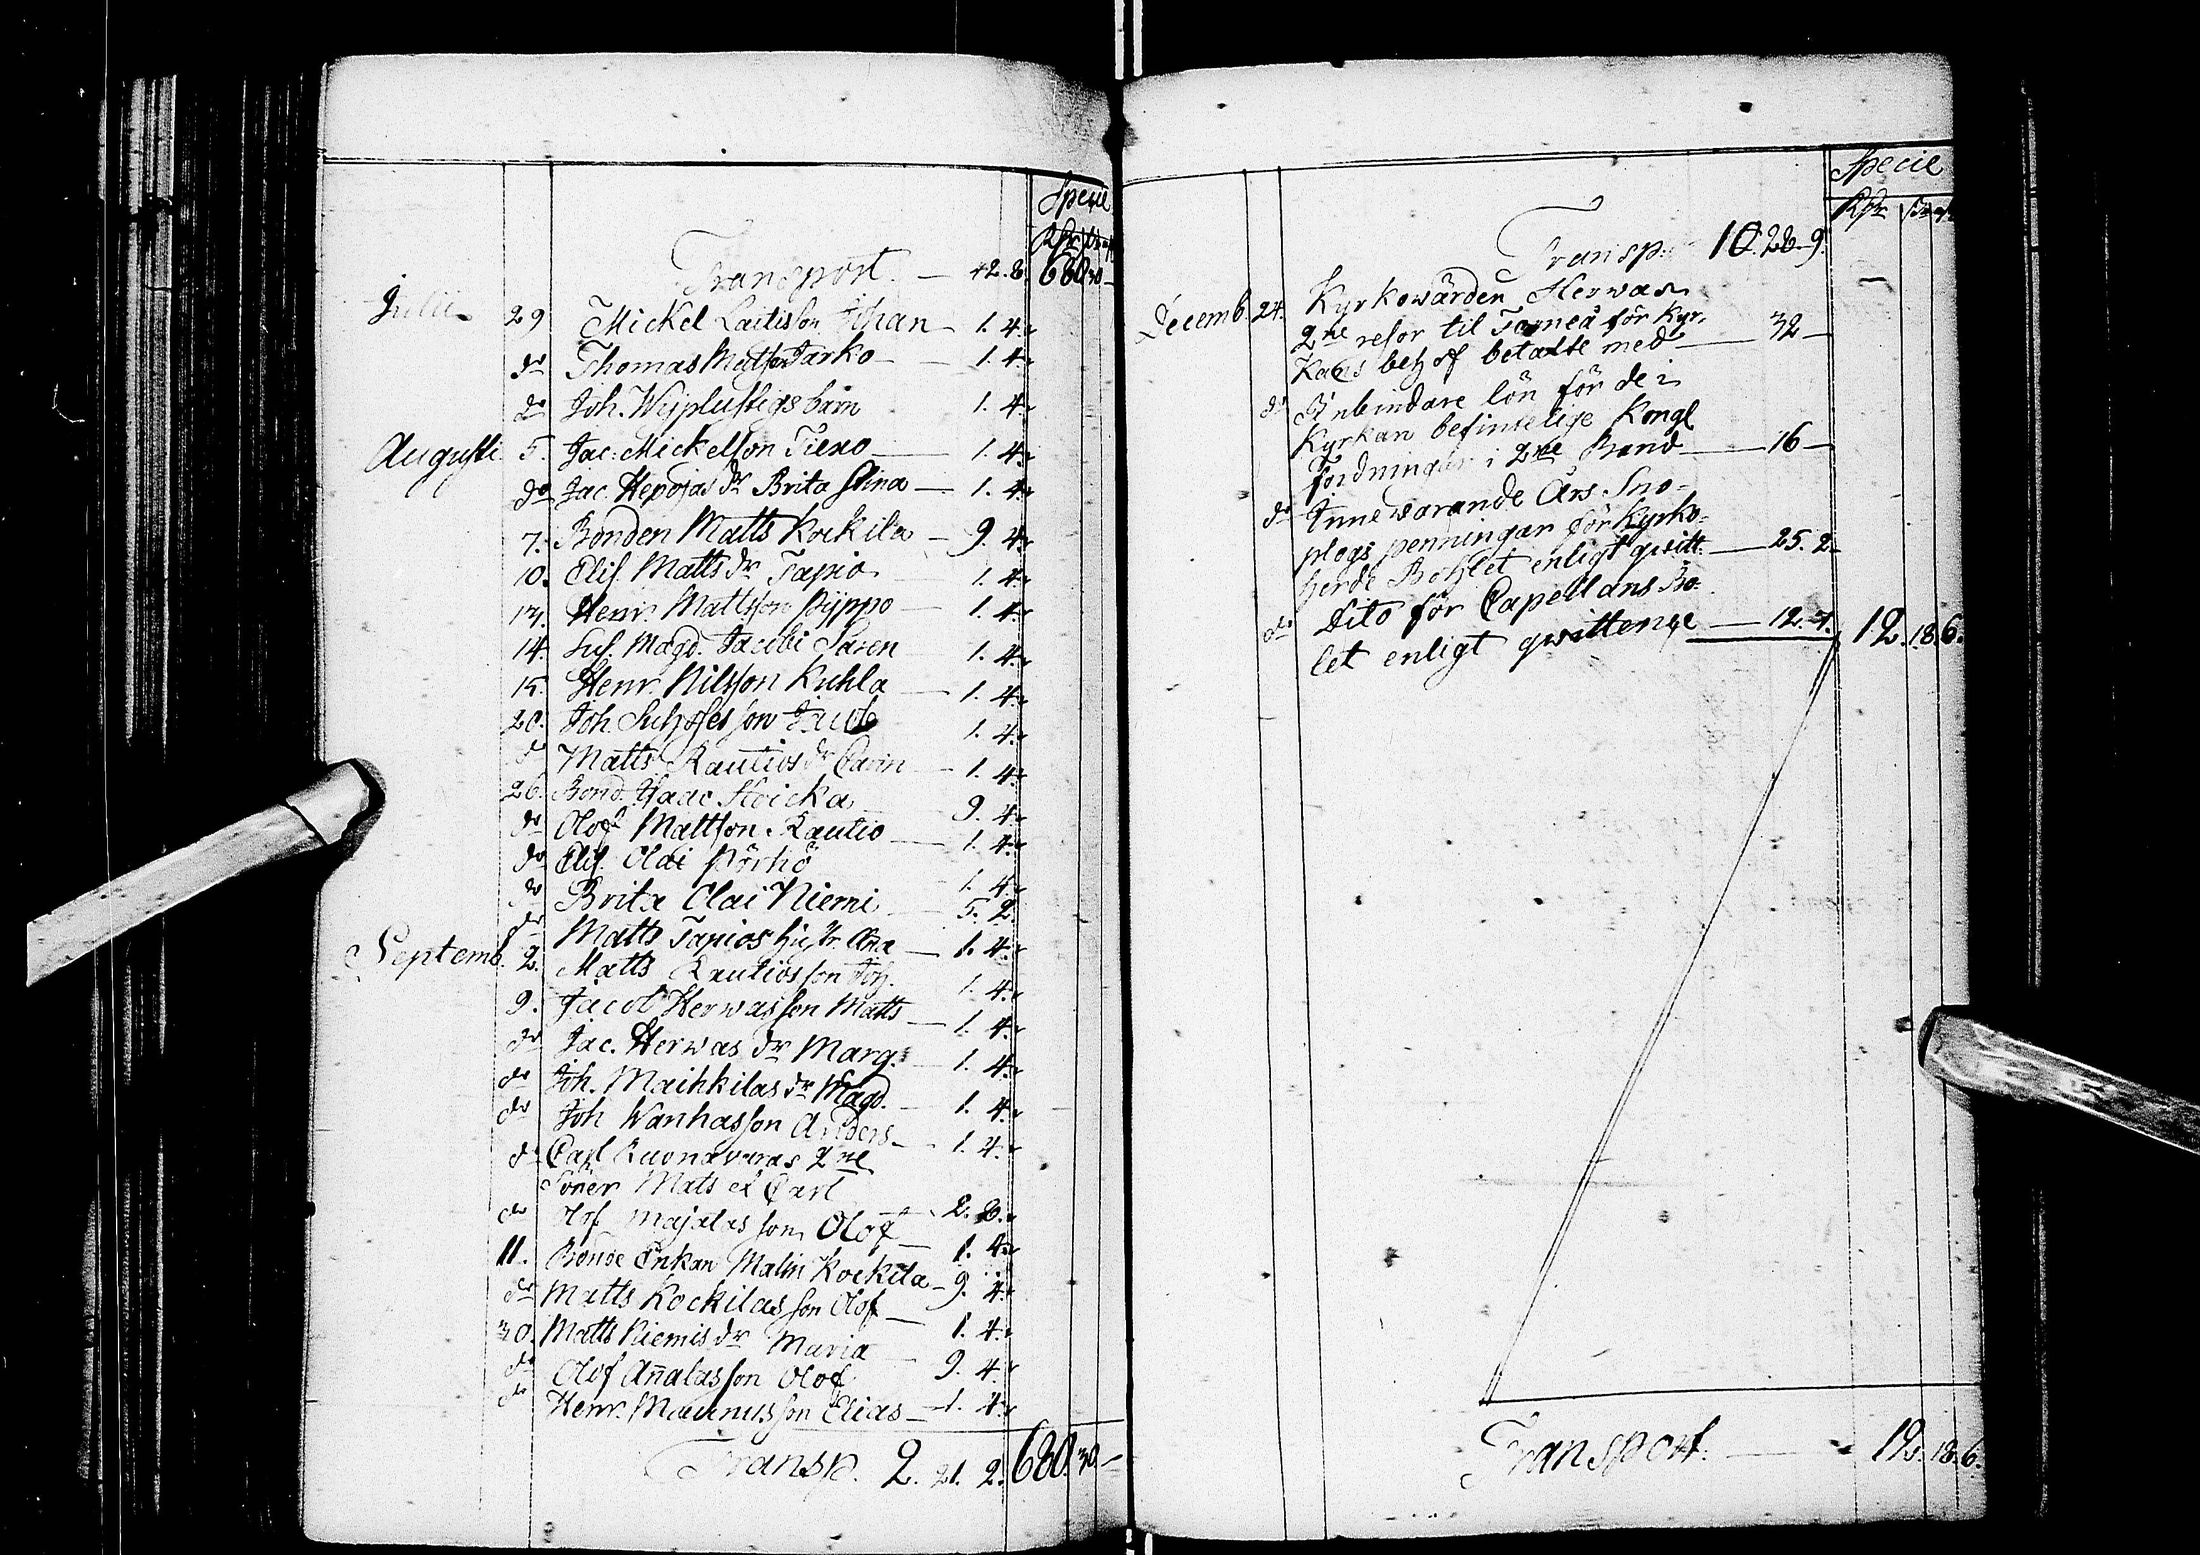 Specie
Transport. — 42. 8. 680 30 —
Julii 29 Mickel Laitisson Johan — 1. 4.
do Thomas Mattson Tarko — 1. 4.
do Joh. Wijplustigs barn 1. 4.
Augusti 5. Jac. Mickelson Tiexo — 1. 4.
do Jac. Hepojas dr Brita Stina — 1. 4.
7. Bonden Matts Kockila — 9. 4.
10. Elis. Matts dr Tapio 1. 4.
13. Henr. Mattsson Pyppo — 1. 4.
14. Sus. Magd. Jacobi Saxen 1. 4.
15. Henr. Nilsson Kuhla — 1. 4.
20. Joh. son Jacob 1. 4.
do Matts Rautios dr Carin — 1. 4.
26. Bond. Isaac Hoicka 9. 4.
do Olof Mattson Rautio — 1. 4.
do Elis. Olai Pörhö 1. 4.
do Brita Olai Niemi 5. 2.
do Matts Tapios hustr. — 1. 4.
Septemb. 2. Matts Rautios son Joh. 1. 4.
9. Jacob Herwas son Matts — 1. 4.
do Jac. Herwas dr Marg. — 1. 4.
do Joh. Maihkilas dr Magd. 1. 4.
do Joh Wanhas son Anders — 1. 4.
do Carl Ruonavaras 2ne
Söner Mats et Carl 2. 8.
do Olof Majalas son Olof — 1. 4.
11. Bonde Enkan Malin Kockila — 9. 4.
do Matts Kockilas son Olof — 1. 4.
30. Matts Niemis dr Maria 9. 4.
do Olof Añalas son Olof
do Henr. Maunus son Elias — 1. 4.
Transp. 2. 21. 2. 680. 30. —
Specie
Rdr
Transp. 10. 28. 9.
Decemb. 24. Kyrkowärden Herwas
2ne resor til Torneå för Kyr-
kans behof betalte med — 32 —
do Inbindare lön för de i
Kyrkan befintelige Kongl
fordningar i 2ne Band — 16 —
do Innewarande Års Sno-
plogs penningar för Kyrko-
herde Bohlet enligt qvitt. — 25. 2.
do Dito för Capellans Bo-
let enligt qvittence — 12. 7. 12. 18. 6.
Transport. — 12. 18. 6.